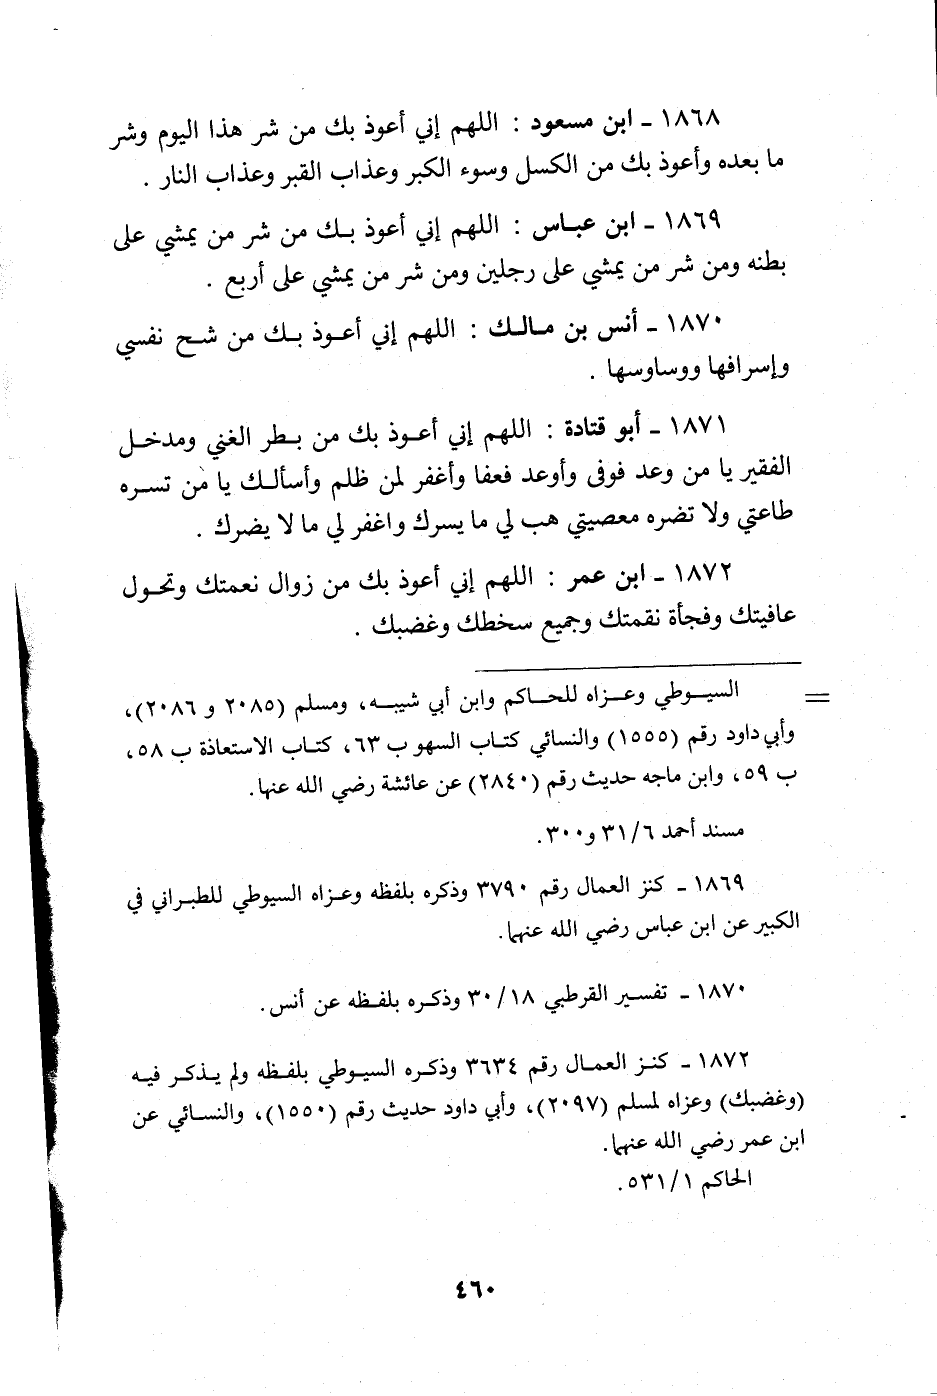 ١٨٦٨ ـ ابن مسعود : اللهم إني أعوذ بك من شر هذا اليوم وشر
ما بعده وأعوذ بك من الكسل وسوء الكبر وعذاب القبر وعذاب النار .
١٨٦٩ ـ ابن عباس : اللهم إني أعوذ بك من شر من يمشي على
بطنه ومن شر من يمشي على رجلين ومن شر من يمشي على أربع .
١٨٧٠ ـ أنس بن مالك : اللهم إني أعوذ بك من شح نفسي
وإسرافها ووساوسها .
١٨٧١ ـ أبو قتادة : اللهم إني أعوذ بك من بطر الغني ومدخل
الفقير يا من وعد فوفى وأوعد فعفا وأغفر لمن ظلم وأسألك يا من تسره
طاعتي ولا تضره معصيتي هب لي ما يسرك واغفر لي ما لا يضرك .
١٨٧٢ ـ ابن عمر : اللهم إني أعوذ بك من زوال نعمتك وتحول
عافيتك وفجأة نقمتك وجميع سخطك وغضبك .
= السيوطي وعزاه للحاكم وابن أبي شيبه، ومسلم (٢٠٨٥ و ٢٠٨٦)،
وأبي داود رقم (١٥٥٥) والنسائي كتاب السهو ب ٦٣، كتاب الاستعاذة ب ٥٨،
ب ٥٩، وابن ماجه حديث رقم (٢٨٤٠) عن عائشة رضي الله عنها.
مسند أحمد ٣١/٦ و٣٠٠.
١٨٦٩ ـ كنز العمال رقم ٣٧٩٠ وذكره بلفظه وعزاه السيوطي للطبراني في
الكبير عن ابن عباس رضي الله عنهما.
١٨٧٠ ـ تفسير القرطبي ٣٠/١٨ وذكره بلفظه عن أنس.
١٨٧٢ ـ كنز العمال رقم ٣٦٣٤ وذكره السيوطي بلفظه ولم يذكر فيه
(وغضبك) وعزاه لمسلم (٢٠٩٧)، وأبي داود حديث رقم (١٥٥٠)، والنسائي عن
ابن عمر رضي الله عنهما.
الحاكم ٥٣١/١.
٤٦٠